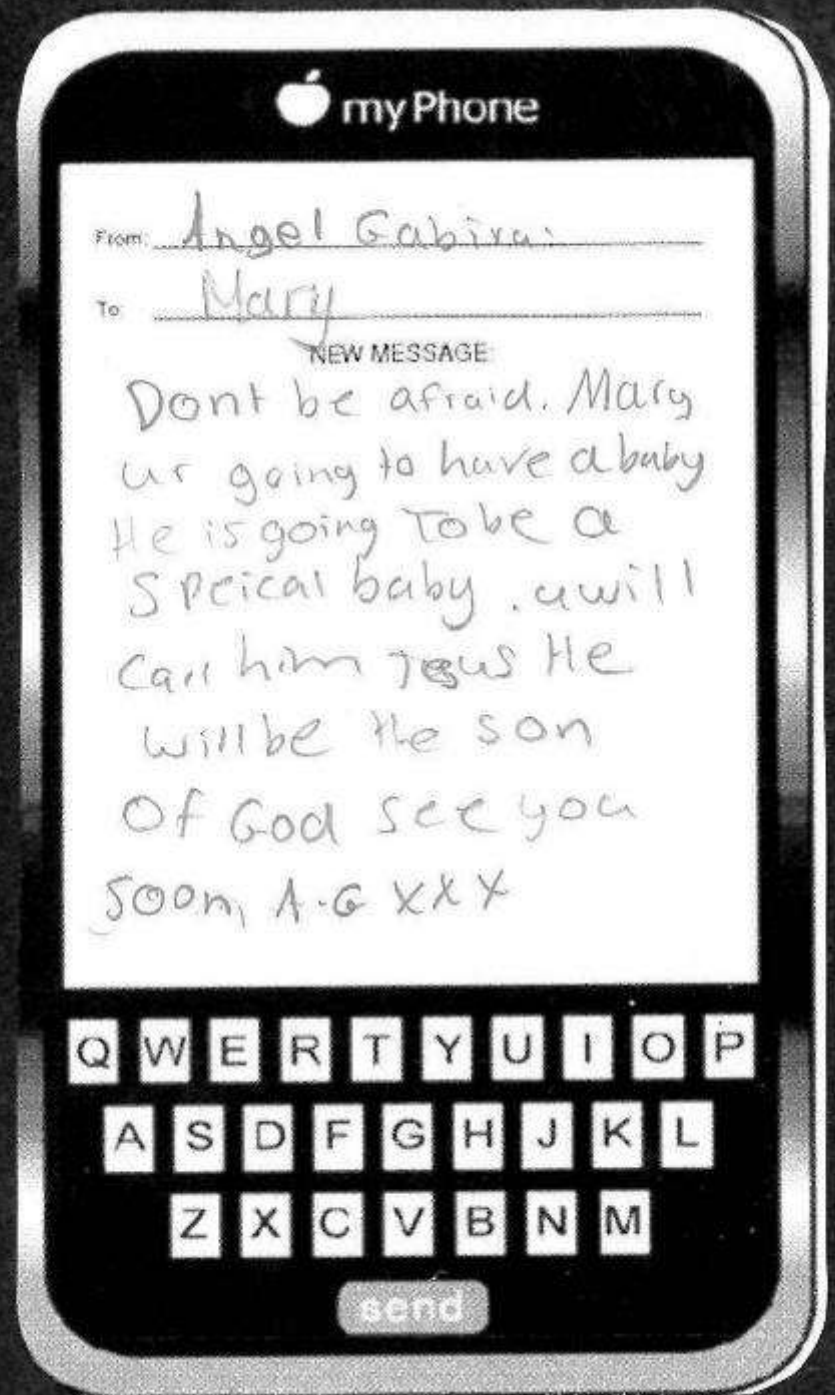 my Phone
From: Angel Gabirai
To: Mary
NEW MESSAGE:
Dont be afraid. Mary
ur going to have a baby
He is going To be a
Speical baby. u will
Call him Jesus He
will be the son
Of God see you
Soon, A.G XXX
Q W E R T Y U I O P
A S D F G H J K L
Z X C V B N M
send